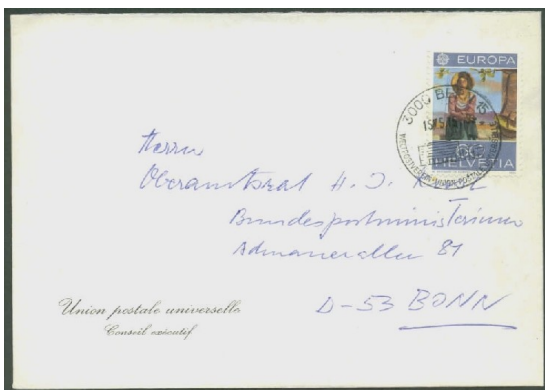 EUROPA
3000 BE 15
60
HELVETIA
Herrn
Oberamtsrat H. J.
Bundespostministerium
Adenauerallee 81
D-53 BONN
Union postale universelle
Conseil exécutif